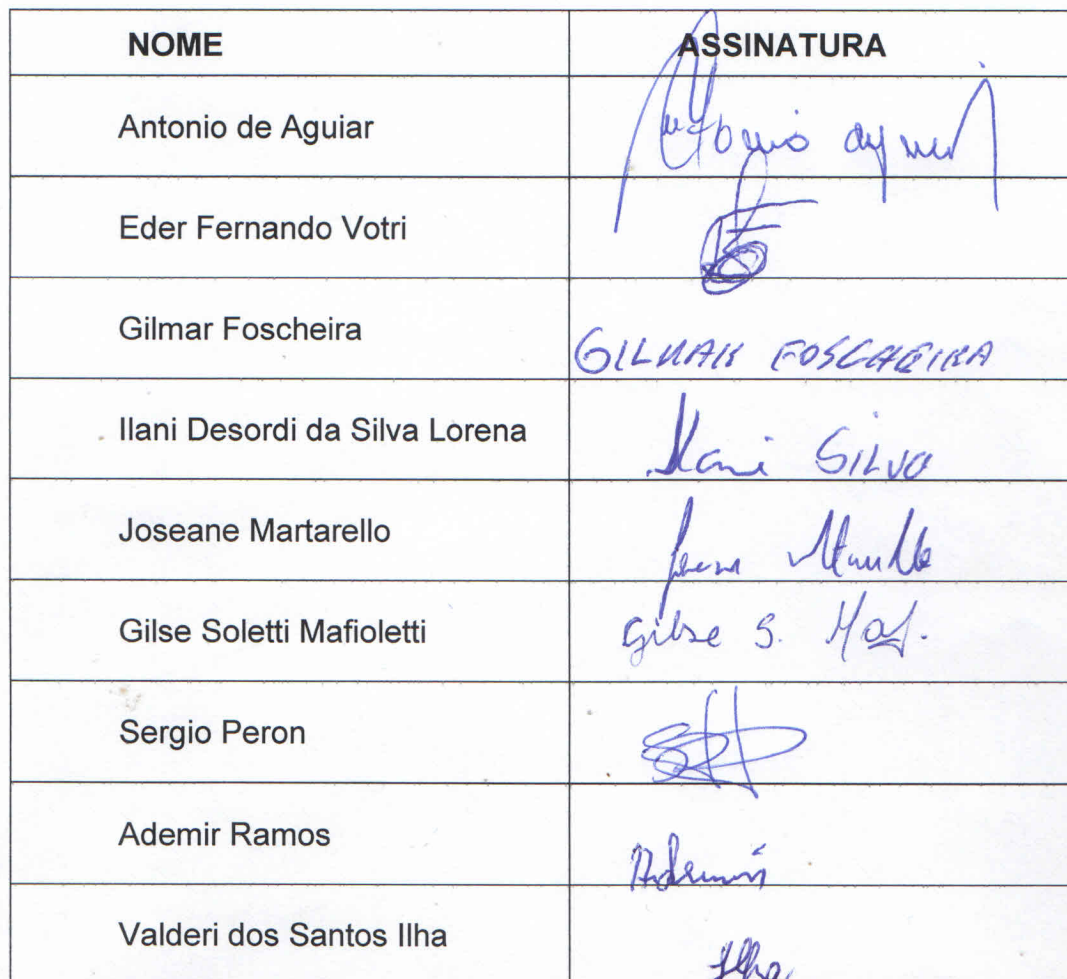 NOME ASSINATURA
Antonio de Aguiar
Eder Fernando Votri
Gilmar Foscheira GILMAR FOSCHEIRA
Ilani Desordi da Silva Lorena Ilani SILVA
Joseane Martarello
Gilse Soletti Mafioletti Gilse S. Maf.
Sergio Peron
Ademir Ramos Ademir
Valderi dos Santos Ilha Ilha